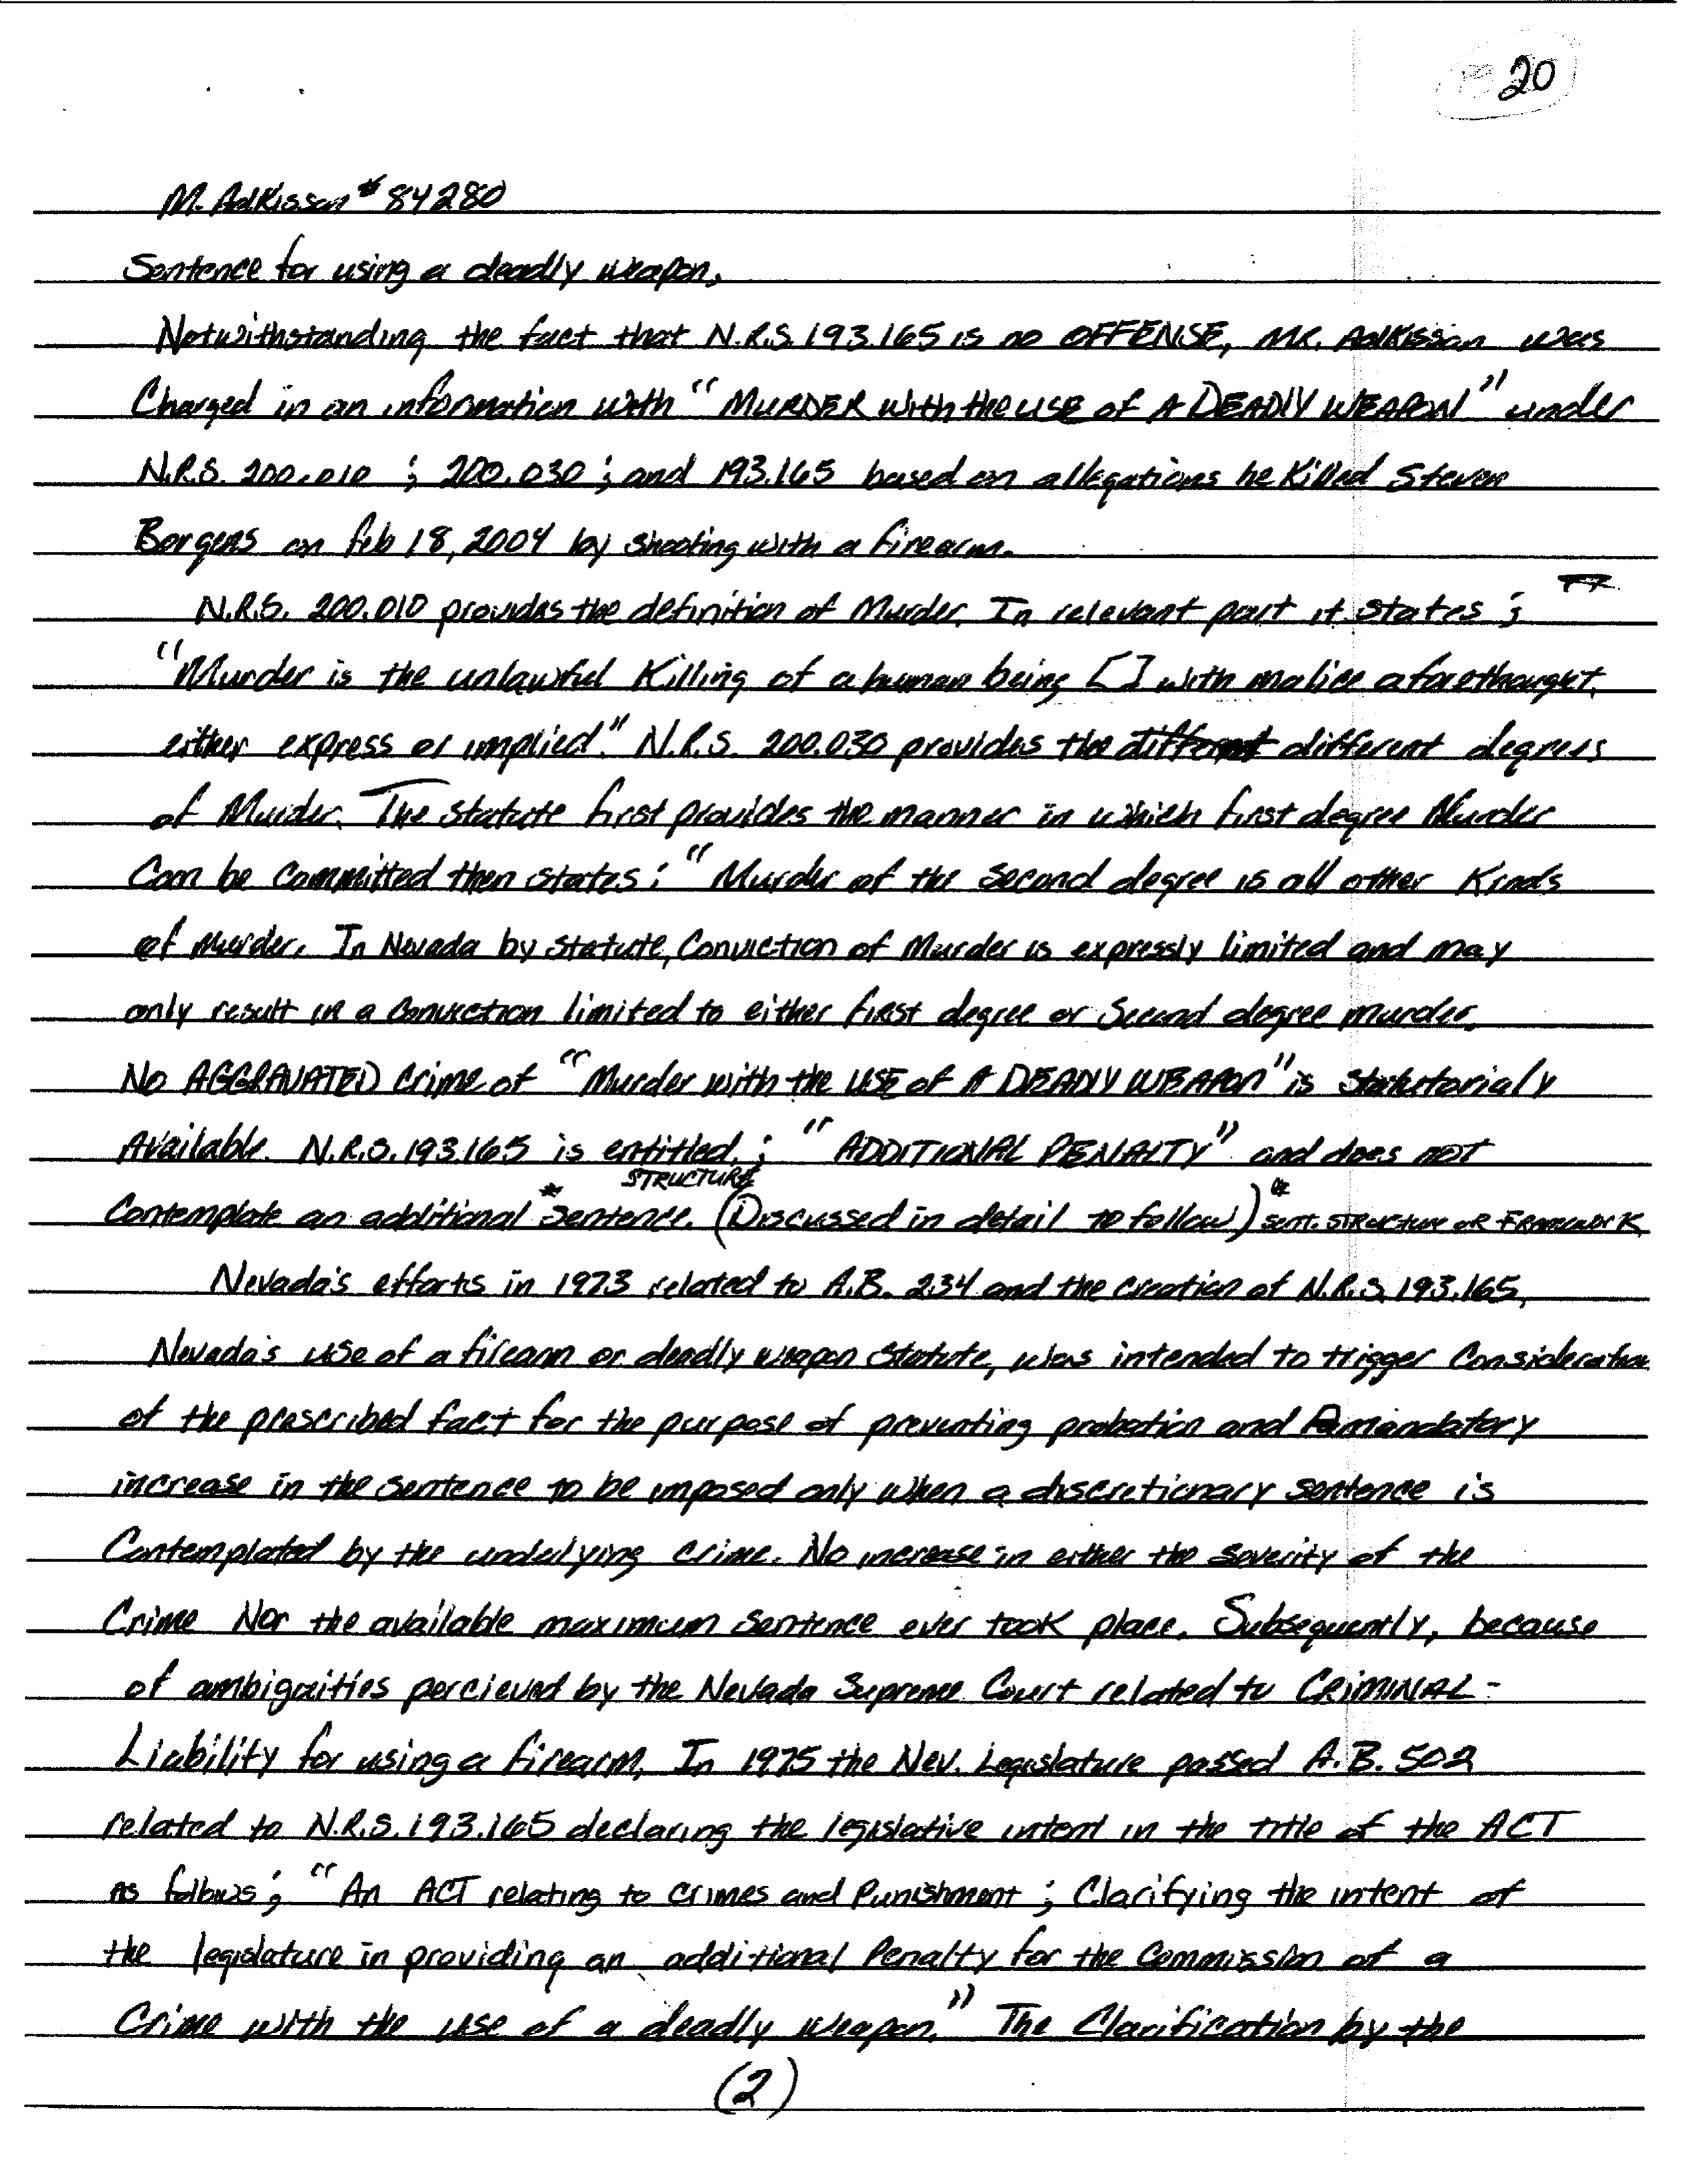 20
M. Adkisson # 84280
Sentence for using a deadly weapon,
Notwithstanding the fact that N.R.S. 193.165 is no OFFENSE, Mr. Adkisson was
Charged in an information with "MURDER with the USE of A DEADLY WEAPON" under
N.R.S. 200.010 ; 200.030 ; and 193.165 based on allegations he Killed Steven
Borgens on feb 18, 2004 by shooting with a firearm.
N.R.S. 200.010 provides the definition of Murder. In relevant part it states ;
"Murder is the unlawful Killing of a human being [ ] with malice aforethought,
either express or implied." N.R.S. 200.030 provides the different degrees
of Murder. The statute first provides the manner in which first degree Murder
Can be Committed then states : "Murder of the Second degree is all other Kinds
of Murder. In Nevada by statute, Conviction of Murder is expressly limited and may
only result in a Conviction limited to either first degree or Second degree murder.
No AGGRAVATED Crime of "Murder with the USE of A DEADLY WEAPON" is Statutorialy
Available. N.R.S. 193.165 is entitled ; "ADDITIONAL PENALTY" and does not
STRUCTURE
Contemplate an additional * Sentence. (Discussed in detail to follow) * SENT. STRUCTURE OR FRAMEWORK
Nevada's efforts in 1973 related to A.B. 234 and the creation of N.R.S. 193.165,
Nevada's use of a firearm or deadly weapon Statute, was intended to trigger Consideration
of the prescribed fact for the purpose of preventing probation and A mandatory
increase in the sentence to be imposed only when a discretionary sentence is
Contemplated by the underlying crime. No increase in either the Severity of the
Crime Nor the available maximum sentence ever took place. Subsequently, because
of ambiguities percieved by the Nevada Supreme Court related to CRIMINAL-
Liability for using a firearm, In 1975 the Nev. Legislature passed A.B. 502
related to N.R.S. 193.165 declaring the legislative intent in the title of the ACT
As follows ; "An ACT relating to Crimes and Punishment ; Clarifying the intent of
the legislature in providing an additional Penalty for the Commission of a
Crime with the use of a deadly weapon." The Clarification by the
(2)